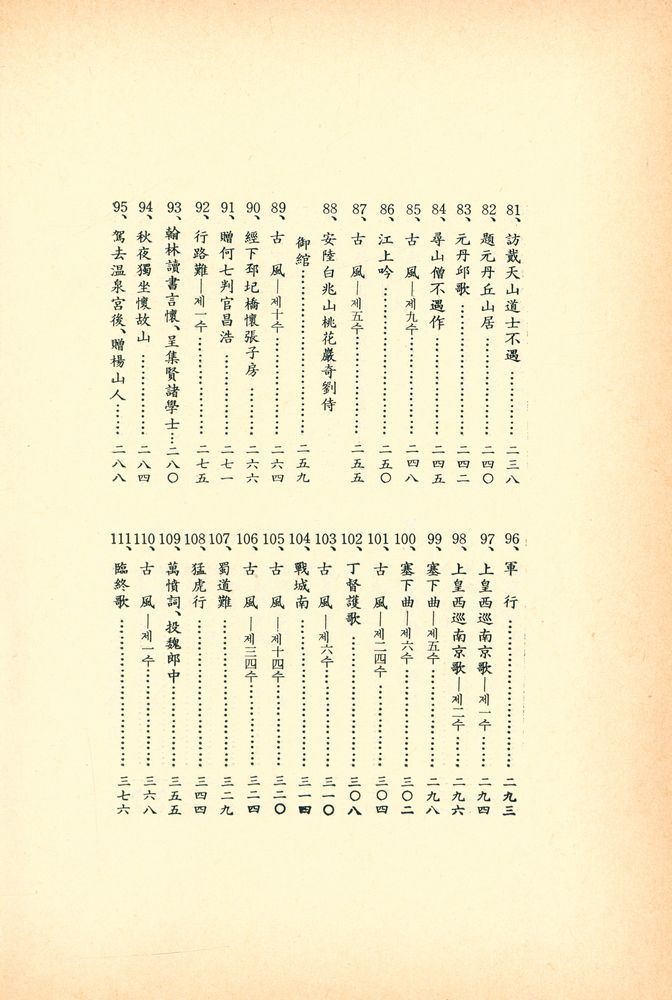 81、訪戴天山道士不遇…………二三八
82、題元丹丘山居…………二四〇
83、元丹邱歌…………二四二
84、尋山僧不遇作…………二四五
85、古 風—제九수…………二四八
86、江上吟…………二五〇
87、古 風—제五수…………二五五
88、安陸白兆山桃花巖奇劉侍
御綰…………二五九
89、古 風—제十수…………二六四
90、經下邳圯橋懷張子房…………二六六
91、贈何七判官昌浩…………二七一
92、行路難—제一수…………二七五
93、翰林讀書言懷、呈集賢諸學士…二八〇
94、秋夜獨坐懷故山…………二八四
95、駕去温泉宮後、贈楊山人……二八八
96、軍 行…………二九三
97、上皇西巡南京歌—제一수……二九四
98、上皇西巡南京歌—제二수……二九六
99、塞下曲—제五수…………二九八
100、塞下曲—제六수…………三〇二
101、古 風—제二四수…………三〇四
102、丁督護歌…………三〇八
103、古 風—제六수…………三一〇
104、戰城南…………三一四
105、古 風—제十四수…………三二〇
106、古 風—제三四수…………三二四
107、蜀道難…………三二九
108、猛虎行…………三四四
109、萬憤詞、投魏郎中…………三五五
110、古 風—제一수…………三六八
111、臨終歌…………三七六